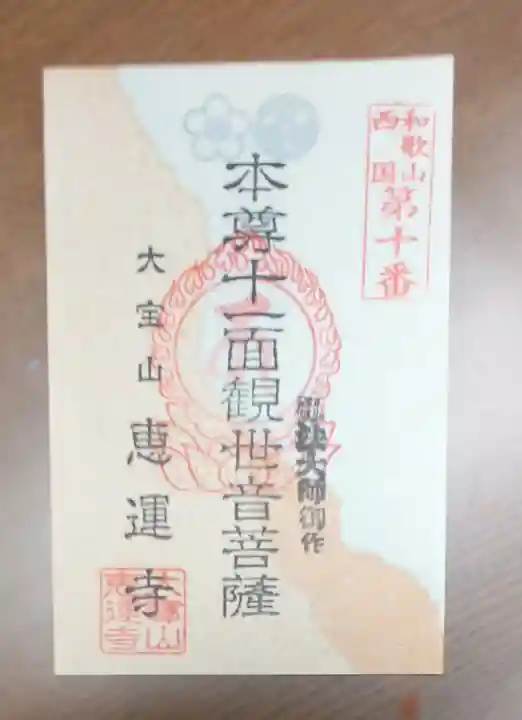 和歌山
西国
第十番
弘法大師御作
本尊十一面観世音菩薩
大宝山 恵運寺
大宝山
恵運寺